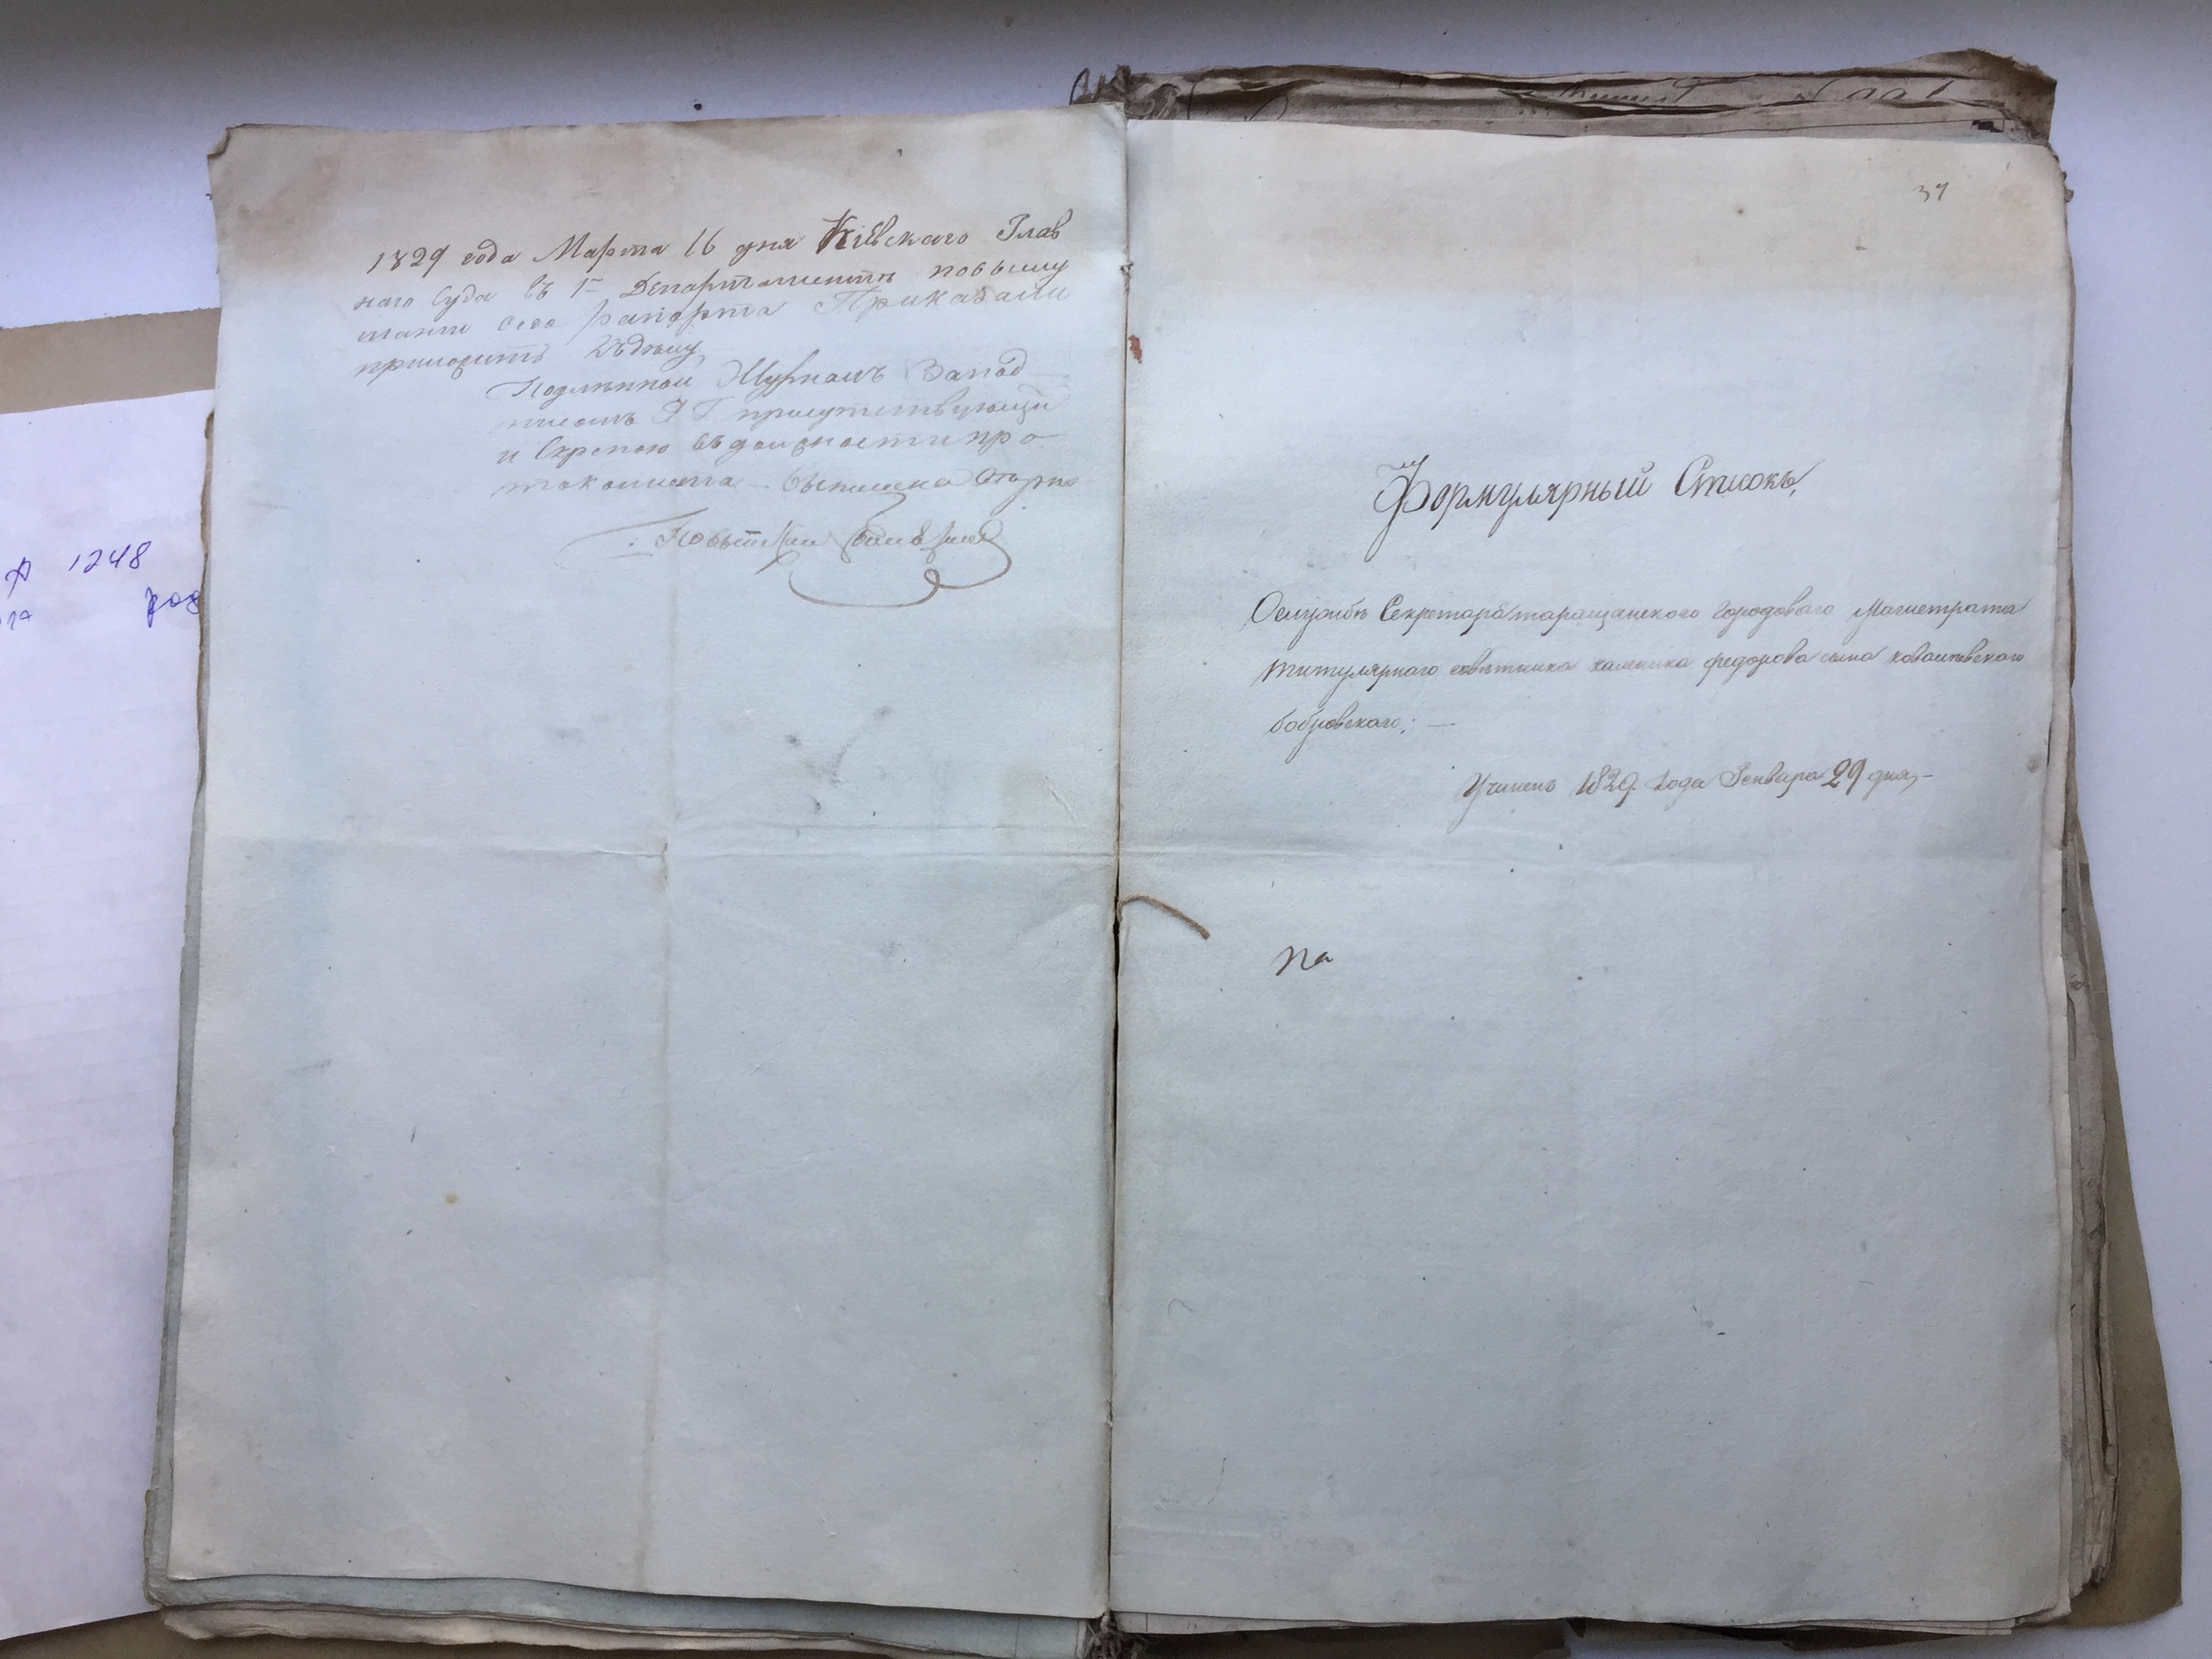 1829 года Марта 16 дня Кіевскаго Глав
наго Суда въ 1м Департаментѣ повыслу
шанiи сего рапорта Приказали
приложить къ дѣлу
Подлѣнной Журналъ Запод
писомъ ГГ присутствующи
и Скрепою въ должности про
токолиста
Повытчик
37
Формулярный Списокъ,
Ослужбѣ Секретаря таращанского Городоваго Магистрата
титулярнаго совѣтника каленика федорова сына ковалевского
бобровскаго; —
Учинен 1829. года Генваря 29 дня, —
па
1248
род